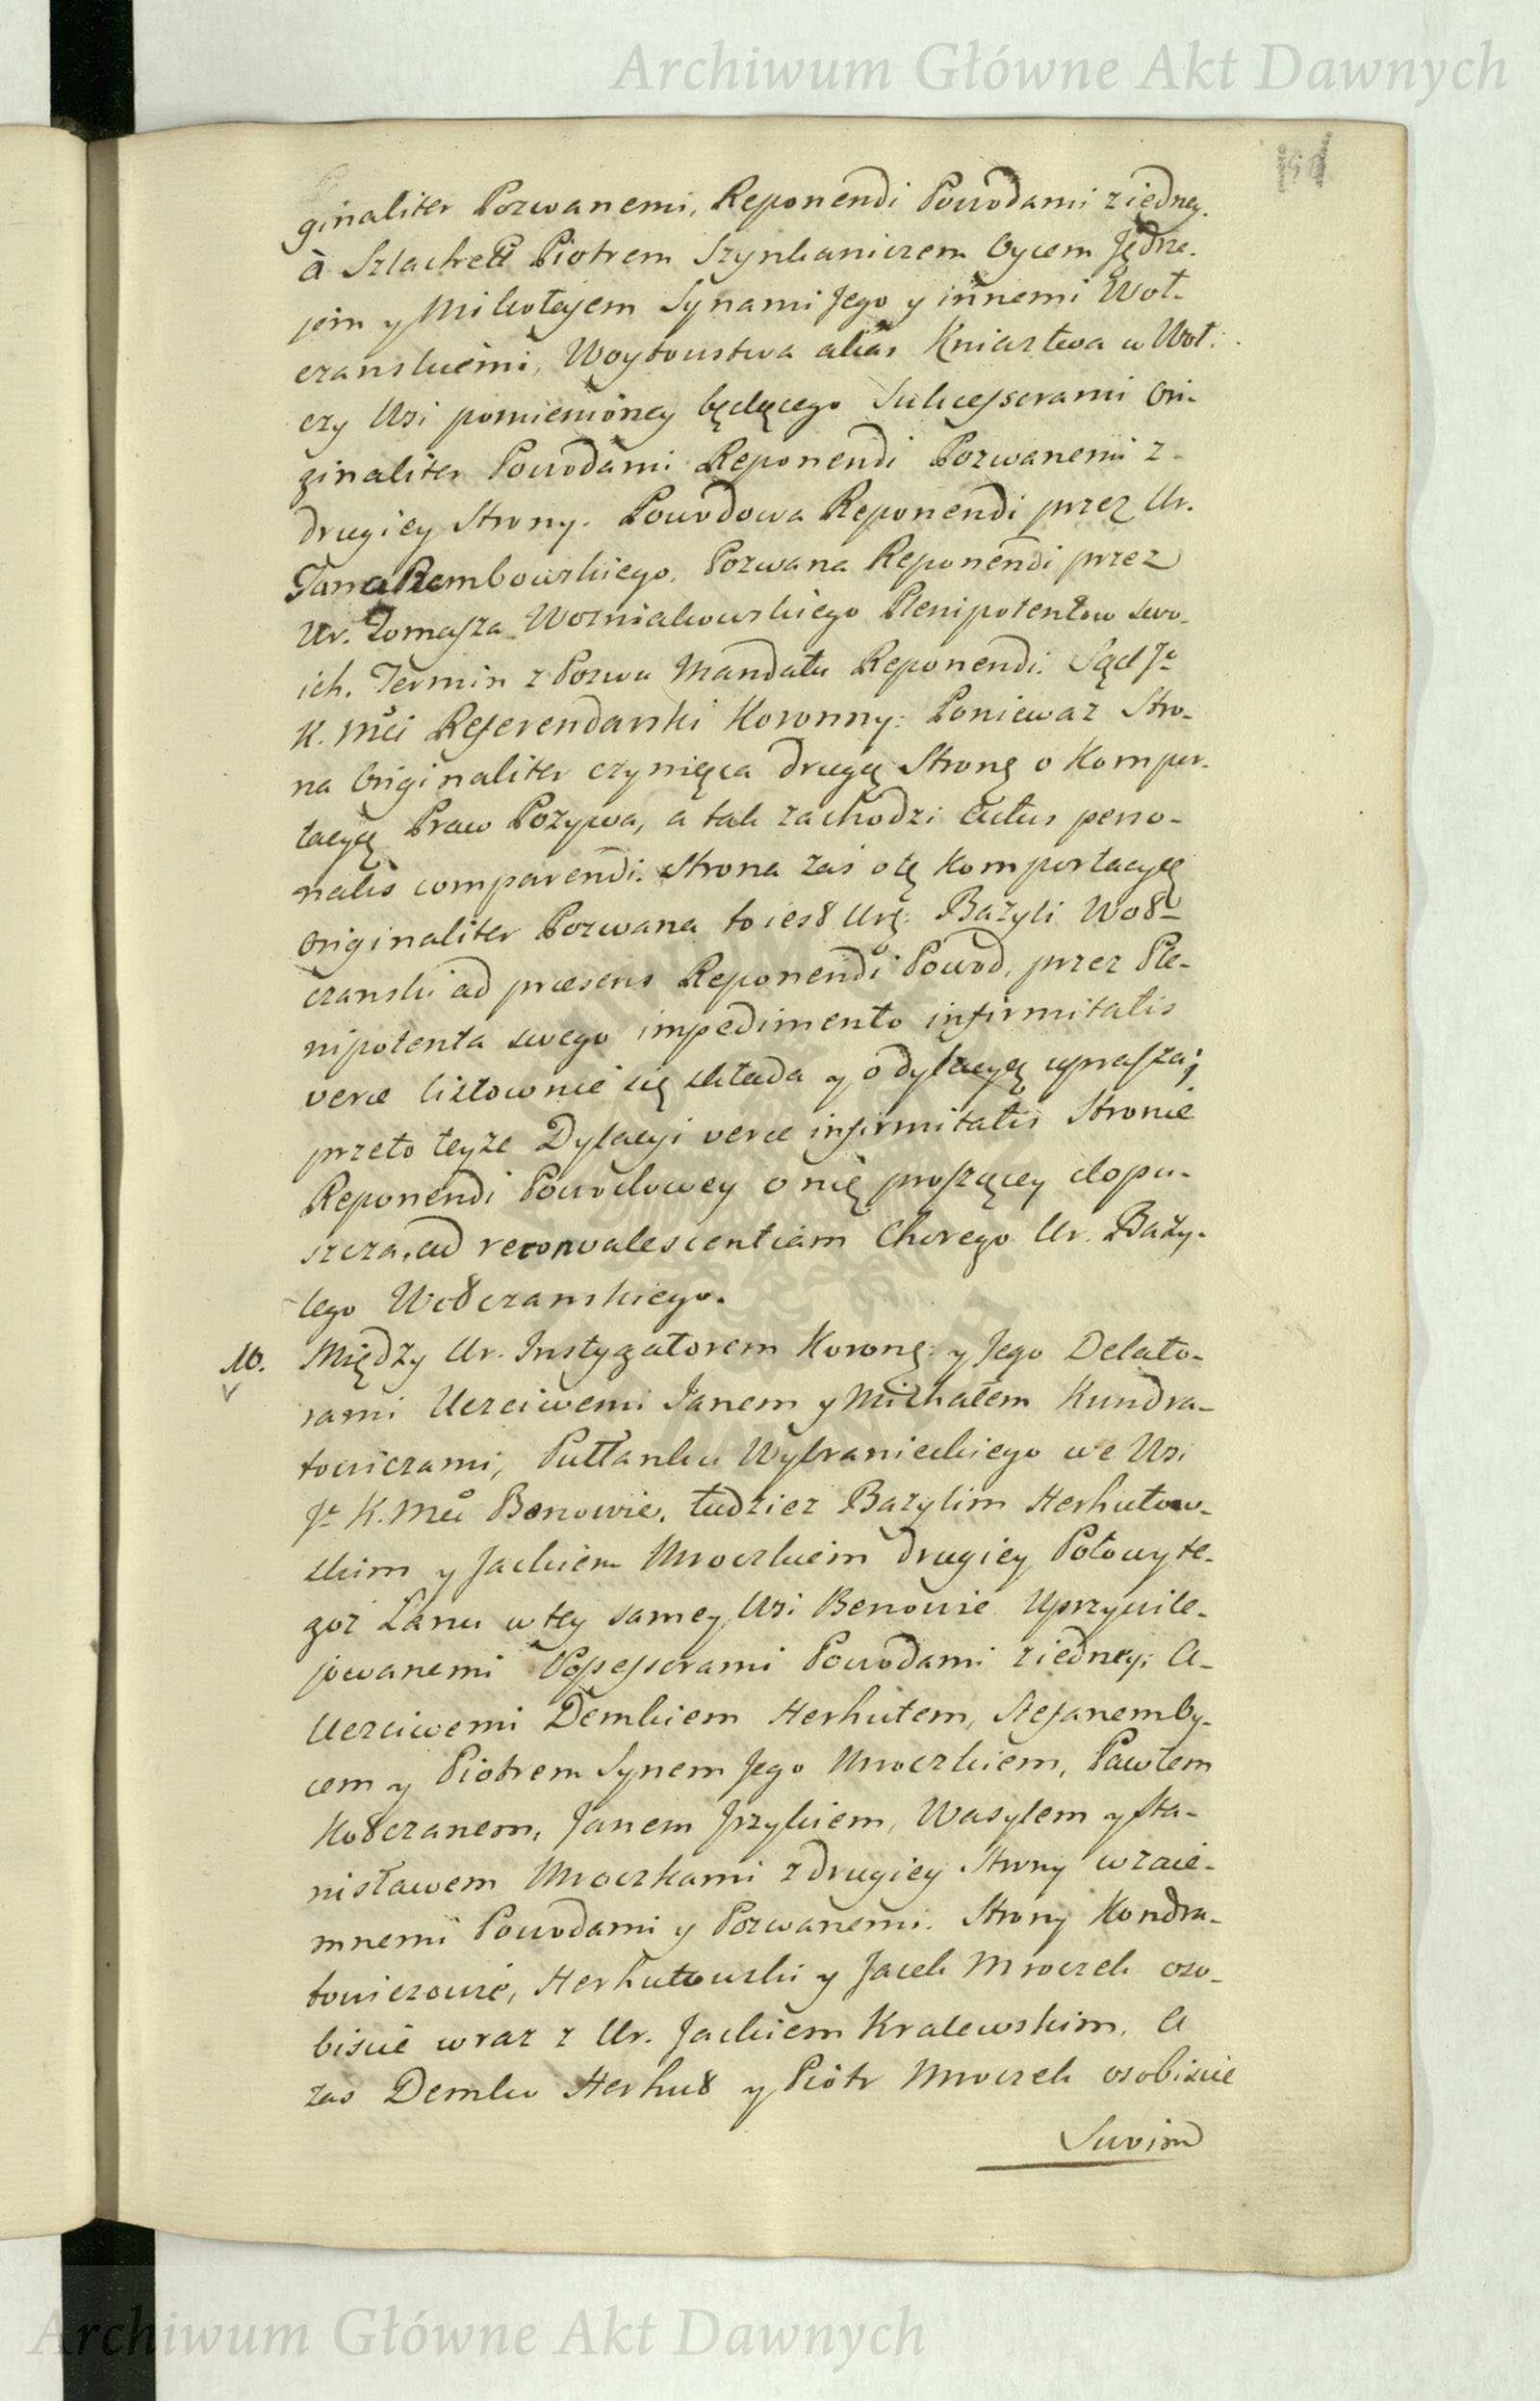 Archiwum Główne Akt Dawnych
ginaliter Pozwanemi, Reponendi Powodami z iedney.
à Szlachett Piotrem Szynkaniczem Oycem Jędrze.
jem y Mikołajem Synami Jego y innemi Woł-
czanskiemi, Woytowstwa alias Kniaztwa w Woł:
czy Wsi pomienioney będącego Sukcessorami Ori-
ginaliter Powodami Reponendi Pozwanemi z
drugiey Strony. Powodowa Reponendi przez Ur.
Jana Rembowskiego, Pozwana Reponendi przez
Ur. Tomasza Wozniakowskiego Plenipotentow swo-
ich. Termin z Pozwu Mandatu Reponendi. Sąd Jo
K. Mci Referendarski Koronny: Poniewaz Stro-
na Originaliter czyniąca drugą Stronę o Kompor-
tacyą Praw Pozywa, a tak zachodzi Actus perso-
nalis comparendi. Strona zaś o tę Komportacyą
Originaliter Pozwana to iest Urę: Bazyli Woł-
czanski ad præsens Reponendi Powod, przez Ple-
nipotenta swego impedimento infirmitatis
veræ listownie się składa y o dylacyą uprasza;
przeto teyze Dylacyi veræ infirmitatis Stronie
Reponendi Powodowey o nię proszącey dopu-
szcza, ad reconvalescentiam Chorego Ur. Bazy-
lego Wołczanskiego.
10. Między Ur. Instygatorem Koronę: y Jego Delato-
rami Uczciwemi Janem y Michałem Kundra-
towiczami, Pułłanku Wybranieckiego we Wsi
Jo K. Mci Benowie, tudziez Bazylim Herhutow-
skim y Jackiem Mroczkiem drugiey Połowy te-
goz Łanu w tey samey Wsi Benowie Uprzywile-
jowanemi Possessorami Powodami z iedney; A-
Uczciwemi Demkiem Herhutem, Stefanem Oy-
cem y Piotrem Synem Jego Mroczkiem, Pawłem
Kołczanem, Janem Jrzykiem, Wasylem y Sta-
nisławem Mroczkami z drugiey Strony wzaie-
mnemi Powodami y Pozwanemi. Strony Kondra-
towiczowie, Herhutowski y Jacek Mroczek oso-
biscie wraz z Ur. Jackiem Kralewskim, A
zas Demko Herhut y Piotr Mroczek osobiscie
Archiwum Główne Akt Dawnych